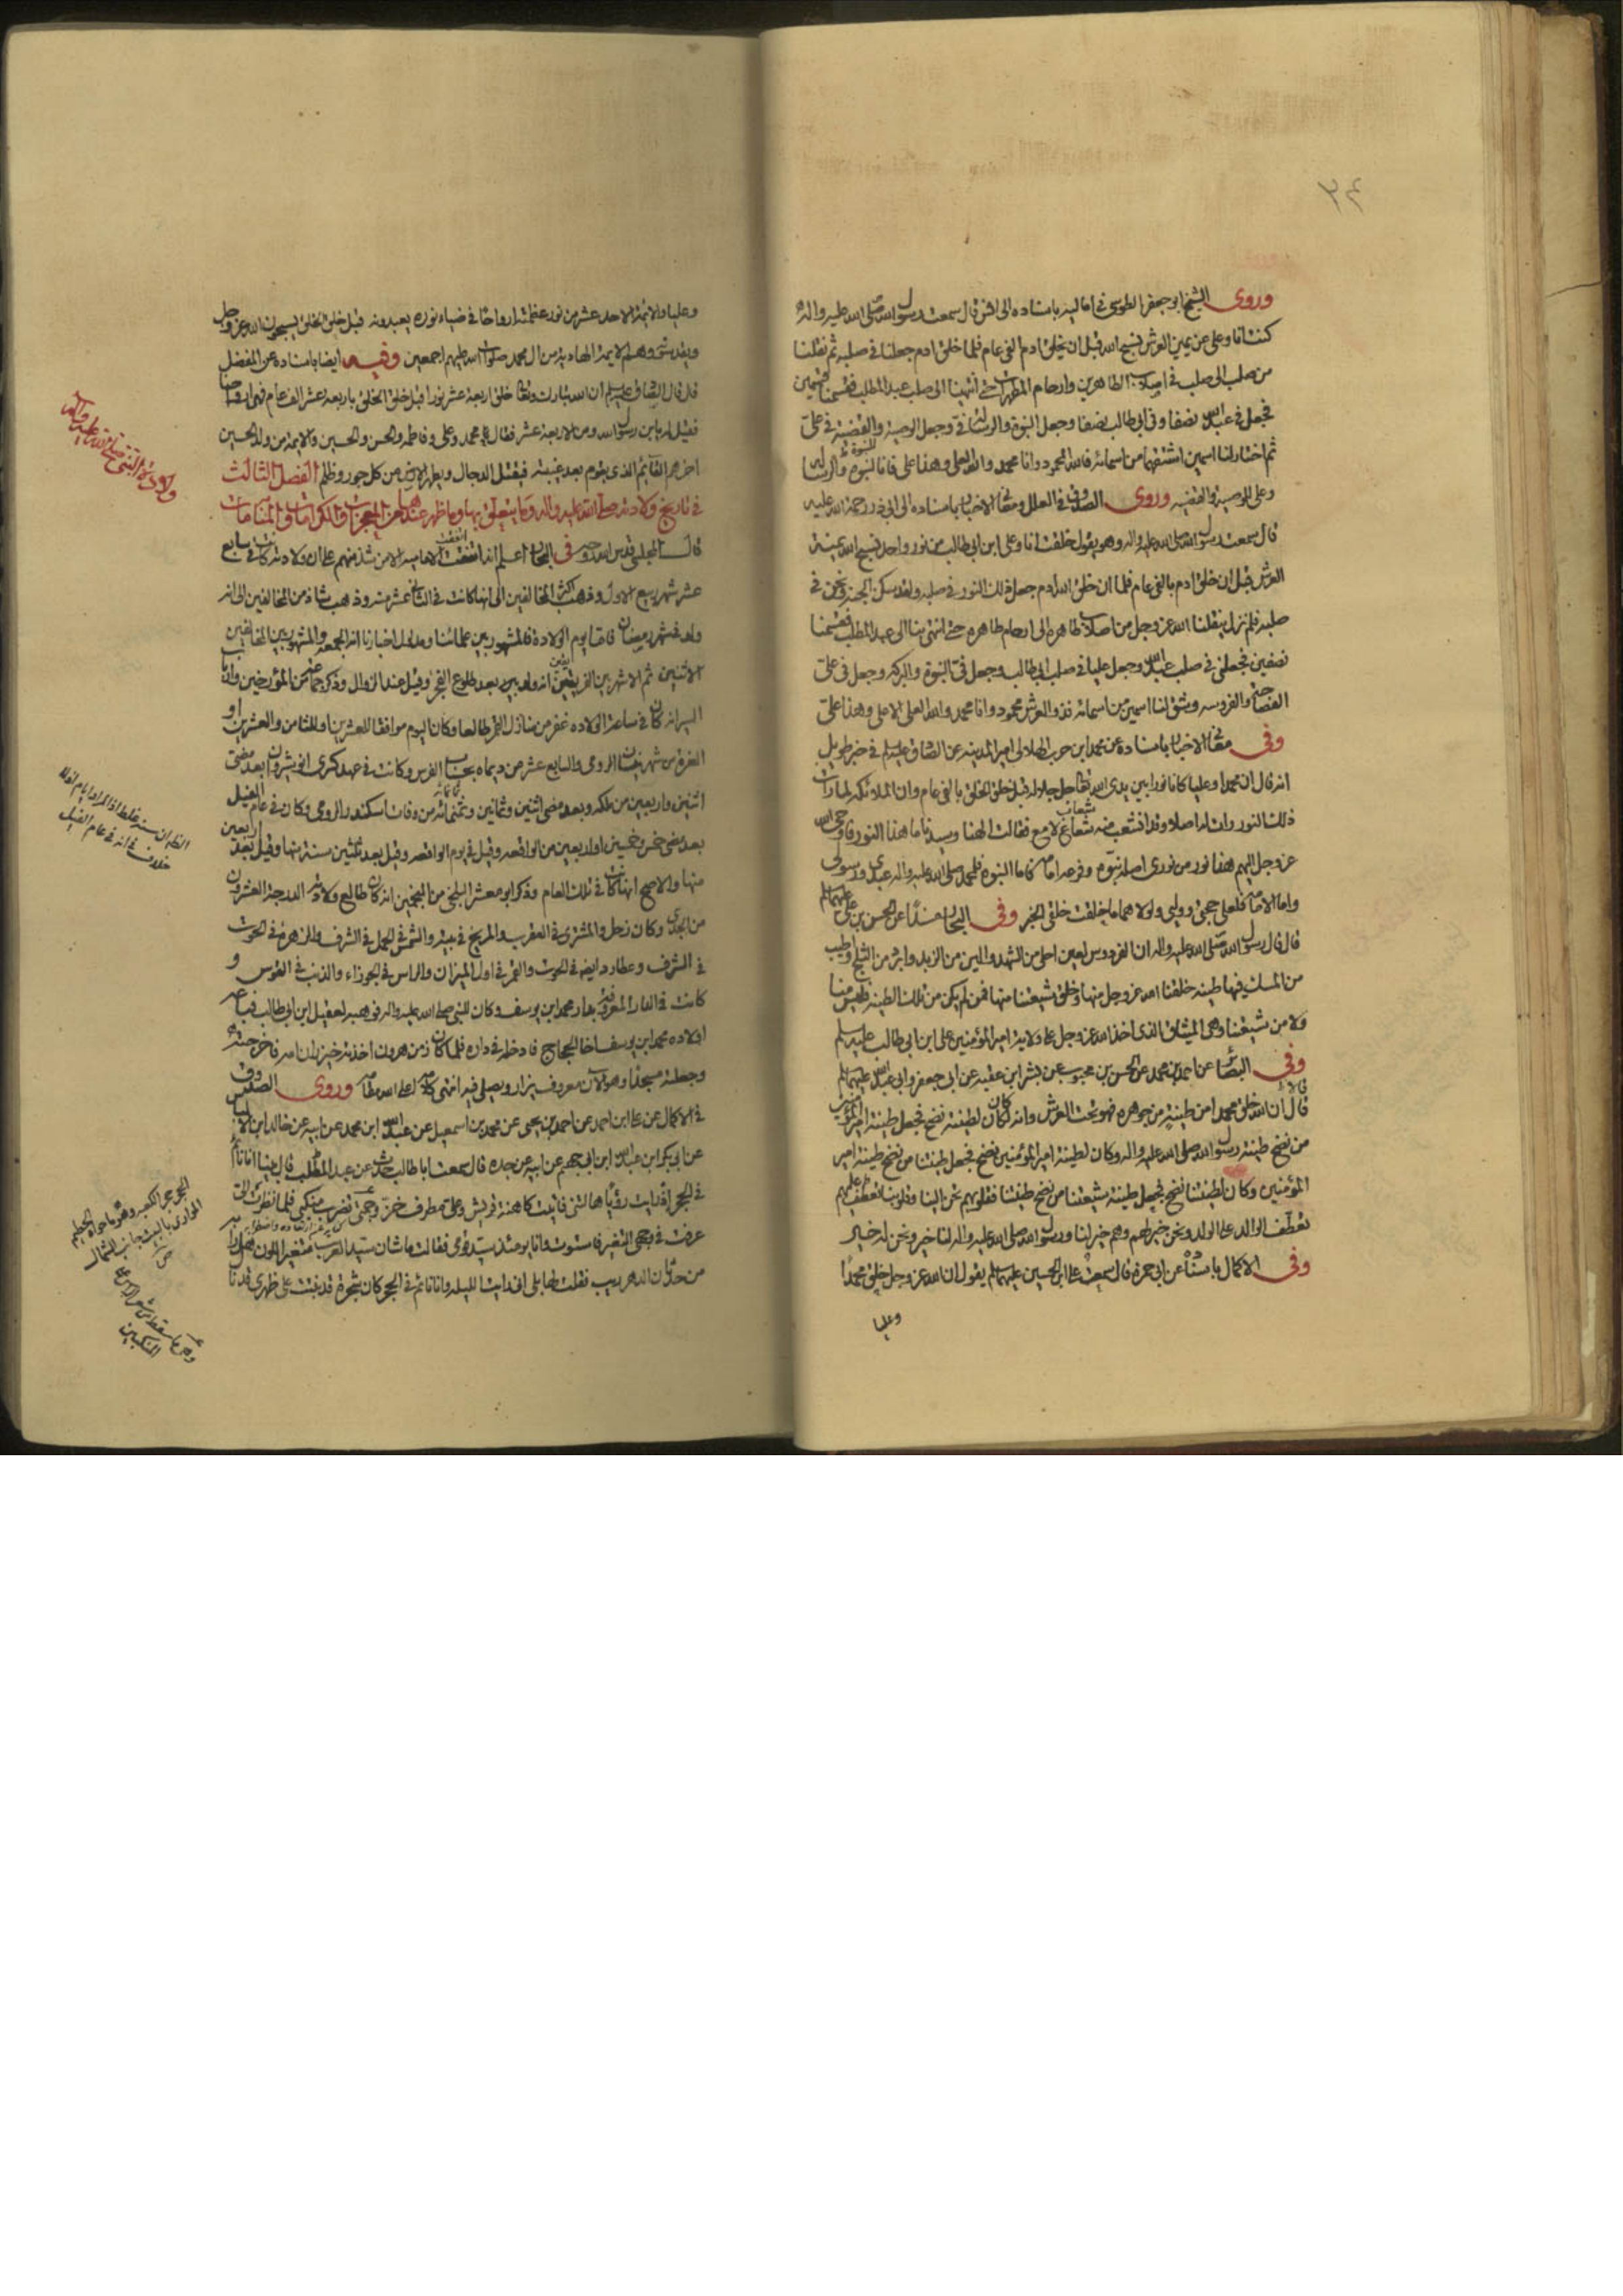 ٣٤
وروى الشيخ ابو جعفر الطوسي في اماليه باسناده الى انس قال سمعت رسول الله صلى الله عليه واله
كنت انا وعلى عن يمين العرش نسبح الله قبل ان يخلق ادم بالفى عام فلما خلق ادم جعلنا في صلبه ثم نقلنا
من صلب الى صلب في اصلاب الطاهرين وارحام المطهرات حتى انتهينا الى صلب عبد المطلب فقسمنا قسمين
فجعل في عبد الله نصفا وفى ابى طالب نصفا وجعل النبوة والرسالة في وجعل الوصية والقضية في على
ثم اختار لنا اسمين اشتقهما من اسمائه فالله المحمود وانا محمد والله العلى وهذا على فانا للنبوة والرسالة
وعلى للوصية والقضيه وروى الصدوق في العلل ومعانى الاخبار باسناده الى ابى ذر رحمة الله عليه
قال سمعت رسول الله صلى الله عليه واله وهو يقول خلقت انا وعلى ابن ابى طالب من نور واحد نسبح الله يمنة
العرش قبل ان خلق ادم بالفى عام فلما ان خلق الله ادم جعل ذلك النور في صلبه ولقد سكن الجنة ونحن في
صلبه فلم نزل ينقلنا الله عز وجل من اصلاب طاهرة الى ارحام طاهرة حتى انتهى بنا الى عبد المطلب فقسمنا
نصفين فجعلنى في صلب عبد الله وجعل عليا في صلب ابى طالب وجعل في النبوة والبركه وجعل في على
الفصاحة والفروسيه وشق لنا اسمين من اسمائه فذو العرش محمود وانا محمد والله العلى الاعلى وهذا على
وفى معانى الاخبار باسناده عن محمد ابن حرب الهلالى امير المدينه عن الصادق عليه السلم في خبر طويل
انه قال ان محمدا وعليا كانا نورا بين يدى الله جل جلاله قبل خلق الخلق بالفى عام وان الملائكة لما رات
ذلك النور رات له اصلا وقد انشعب منه شعاع لامع فقالت الهنا وسيدنا ما هذا النور فاوحى الله
عز وجل اليهم هذا نور من نورى اصله نبوه وفرعه امامه فاما النبوه فلمحمد صلى الله عليه واله عبدى ورسولى
واما الامامه فلعلى حجتى ووليى ولولا هما ما خلقت خلقى الخبر وفى البحار مسندا عن الحسن بن على عليهما السلم
قال قال رسول الله صلى الله عليه واله ان الفردوس لعين احلى من الشهد والين من الزبد وابرد من الثلج واطيب
من المسك فيها طينه خلقنا الله عز وجل منها وخلق شيعتنا منها فمن لم يكن من تلك الطينه فليس منا
ولا من شيعتنا وهى الميثاق الذى اخذ الله عز وجل على ولاية امير المؤمنين على ابن ابى طالب عليه السلم
وفى البصائر عن احمد بن محمد عن الحسن بن محبوب عن بشر ابن عقبه عن ابى جعفر وابى عبد الله عليهما السلم
قال ان الله خلق محمدا من طينة من جوهره تحت العرش وانه كان لطينته نضح فجعل طينة امير المؤمنين
من نضح طينة رسول الله صلى الله عليه واله وكان لطينة امير المؤمنين نضح فجعل طينتنا من نضح طينة امير
المؤمنين وكان لطينتنا نضح فجعل طينة شيعتنا من نضح طينتنا فقلوبهم تحن الينا وقلوبنا تعطف عليهم
تعطف الوالد على الولد ونحن خير لهم وهم خير لنا ورسول الله صلى الله عليه واله لنا خير ونحن له خير
وفى الاكمال باسناده عن ابى حمزة قال سمعت على ابن الحسين عليهما السلم يقول ان الله عز وجل خلق محمدا
وعليا
وعليا والائمة الاحد عشر من نور عظمته ارواحا في ضياء نوره يعبدونه قبل خلق الخلق يسبحون الله عز وجل
ويقدسونه وهم الائمة الهادية من ال محمد صلوات الله عليهم اجمعين وفيه ايضا باسناده عن المفضل
قال قال الصادق عليه السلم ان الله تبارك وتعالى خلق اربعة عشر نورا قبل خلق الخلق باربعة عشر الف عام فهى ارواحنا
فقيل له يابن رسول الله ومن الاربعة عشر فقال محمد وعلى وفاطمه والحسن والحسين والائمة من ولد الحسين
اخرهم القائم الذى يقوم بعد غيبته فيقتل الدجال ويطهر الارض من كل جور وظلم الفصل الثالث
في تاريخ ولادته صلى الله عليه واله وما يتعلق بها وما ظهر عندها من المعجزات والكرامات والمنامات
قال المجلسى قدس الله روحه في البحار اعلم انه اتفقت الاماميه الا من شذ منهم على ان ولادته كانت في سابع
عشر شهر ربيع الاول وذهب اكثر المخالفين الى انها كانت في الثانى عشر منه وذهب شاذ من المخالفين الى انه
ولد في شهر رمضان فاما يوم الولادة فالمشهور بين علمائنا ومدلول اخبارنا انه الجمعة والمشهور بين المخالفين
الاثنين ثم الاشهر بين الفريقين انه ولد بعد طلوع الفجر وقيل عند الزوال وذكر جماعة من المؤرخين وارباب
السير انه كان في ساعة الولاده غفر من منازل القمر طالعا وكان اليوم موافقا للعشرين او للثامن والعشرين او
الغرة من شهر نيسان الرومى والسابع عشر من ديماه بحساب الفرس وكانت في عهد كسرى انوشيروان بعد مضى
اثنين واربعين من ملكه وبعد مضى اثنين وثمانين وثمانمائه من وفات اسكندر الرومى وكان في عام الفيل
بعد مضى خمس وخمسين او اربعين من الواقعه وقيل في يوم الواقعه وقيل بعد ثلثين سنة منها وقيل بعد اربعين
منها والاصح انها كانت في تلك العام وذكر ابو معشر البلخى من المنجمين انه كان طالع ولادته الدرجة العشرون
من الجدى وكان زحل والمشترى في العقرب والمريخ في بيته والشمس في الحمل في الشرف والزهرة في الحوت
في الشرف وعطارد ايضا في الحوت والقمر في اول الميزان والراس في الجوزاء والذنب في القوس و
كانت في الدار المعروفة بدار محمد ابن يوسف وكان للنبى صلى الله عليه واله فوهبه لعقيل ابن ابى طالب فباعه
اولاده محمد ابن يوسف اخا الحجاج فادخله في داره فلما كان زمن هرون اخذته خيزران امه فاخرجته
وجعلته مسجدا وهو الان معروف يزار ويصلى فيه انتهى كلامه اعلى الله مقامه وروى الصدوق
في الاكمال عن على ابن احمد عن احمد بن يحيى عن محمد بن اسمعيل عن عبد الله ابن محمد عن ابيه عن خالد ابن الياس
عن ابى بكر ابن عبد الله ابن ابى جهم عن ابيه عن جده قال سمعت ابا طالب حدث عن عبد المطلب قال بينا انا نائم
في الحجر اذ رايت رؤيا هالتنى فاتيت كاهنة قريش وعلى مطرف خز وجمتى تضرب منكبى فلما نظرت الى
عرفت في وجهى التغير فاستوت وانا يومئذ سيد قومى فقالت ما شان سيد العرب متغير اللون هل رابه
من حدثان الدهر ريب فقلت لها بلى انى رايت الليلة وانا نائم في الحجر كان شجرة قد نبتت على ظهرى قد نال
ولادة النبى صلى الله عليه واله
الظ ان سنة غلط
خلاف في انه في عام الفيل